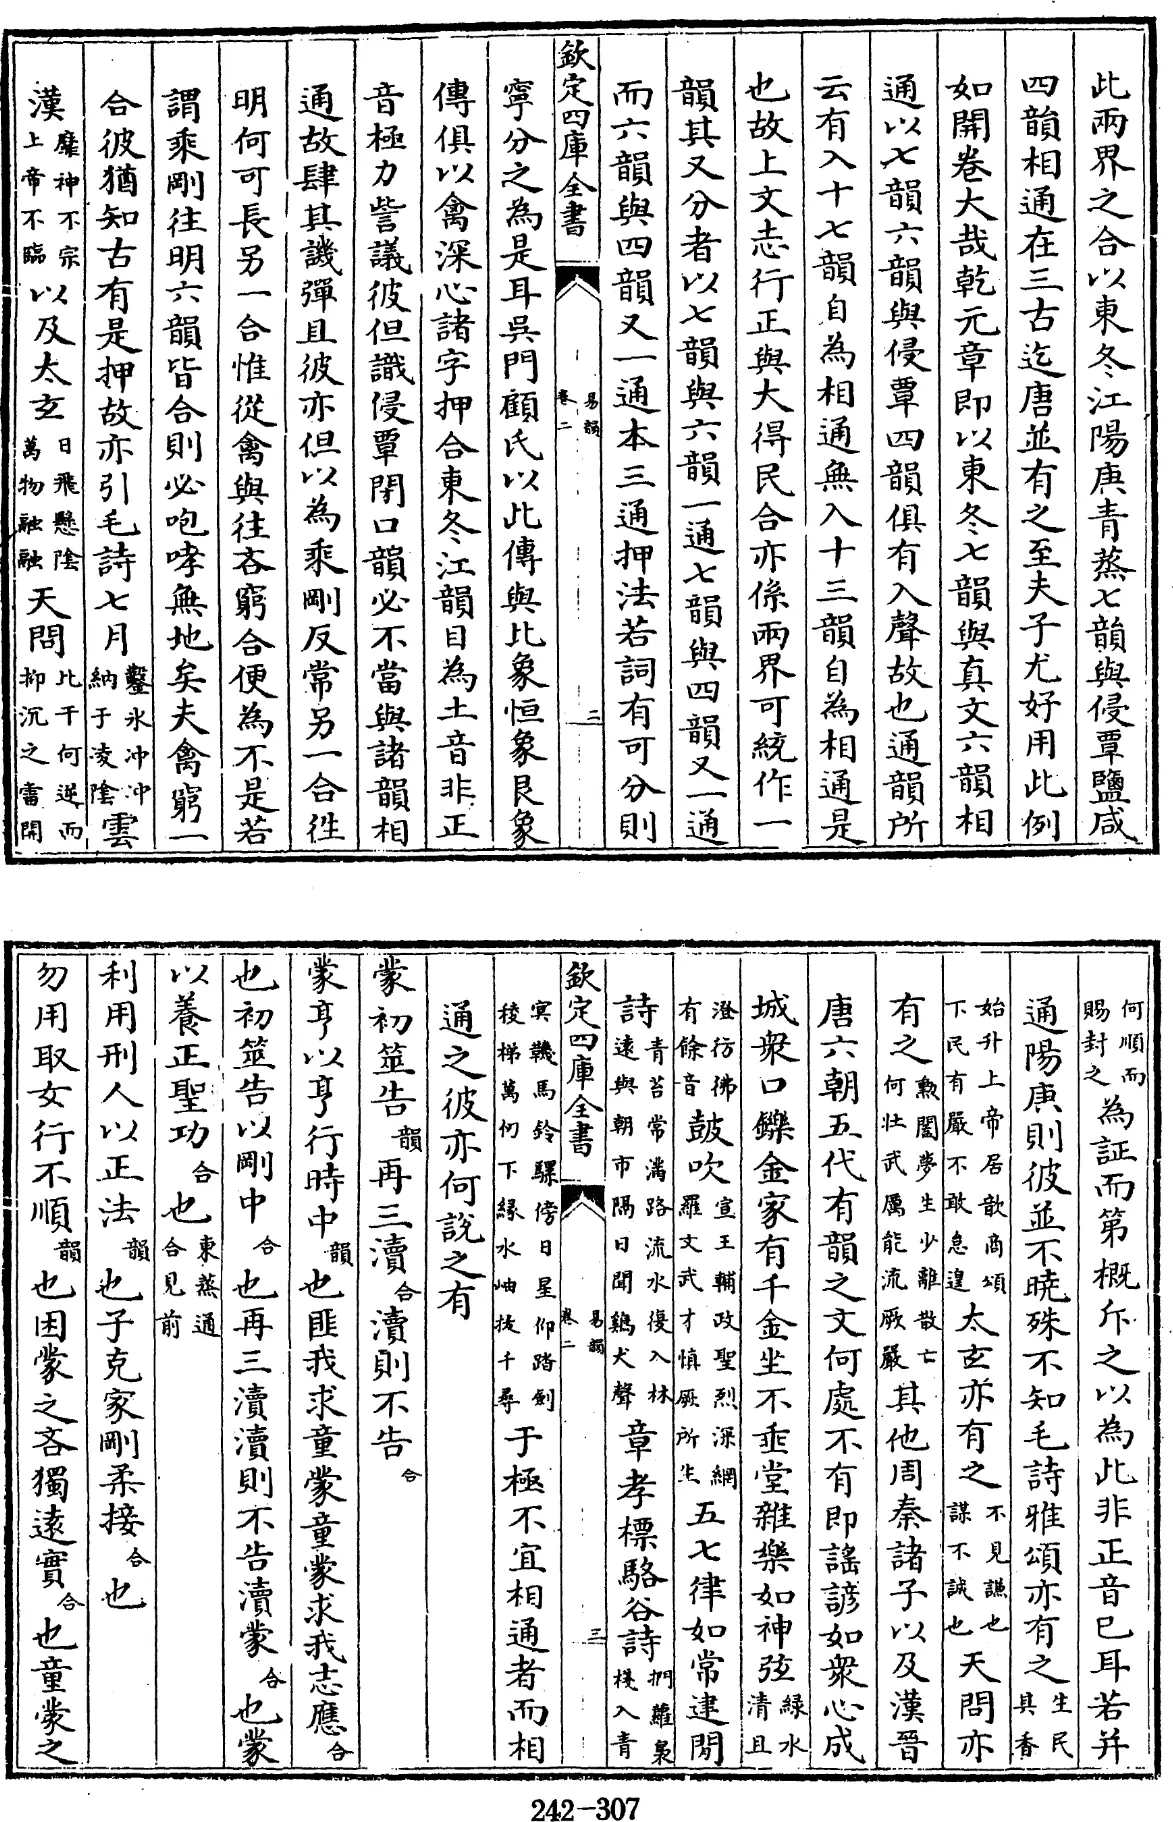 此兩界之合以東冬江陽庚青蒸七韻與侵覃鹽咸
四韻相通在三古迄唐並有之至夫子尤好用此例
如開卷大哉乾元章即以東冬七韻與真文六韻相
通以七韻六韻與侵覃四韻俱有入聲故也通韻所
云有入十七韻自為相通無入十三韻自為相通是
也故上文志行正與大得民合亦係兩界可統作一
韻其又分者以七韻與六韻一通七韻與四韻又一通
而六韻與四韻又一通本三通押法若詞有可分則
欽定四庫全書
易韻
卷二
三
寧分之為是耳吳門顧氏以此傳與比象恒象艮象
傳俱以禽深心諸字押合東冬江韻目為土音非正
音極力訾議彼但識侵覃閉口韻必不當與諸韻相
通故肆其譏彈且彼亦但以為乘剛反常另一合徃
明何可長另一合惟從禽與往吝窮合便為不是若
謂乘剛往明六韻皆合則必咆哮無地矣夫禽窮一
合彼猶知古有是押故亦引毛詩七月鑿氷冲冲納于凌陰雲
漢靡神不宗上帝不臨以及太玄日飛懸陰萬物融融天問比干何逆而抑沉之雷開
何順而賜封之為証而第概斥之以為此非正音已耳若并
通陽庚則彼並不曉殊不知毛詩雅頌亦有之生民其香
始升上帝居歆商頌下民有嚴不敢怠遑太玄亦有之不見謙也謀不誠也天問亦
有之勲闔夢生少離散亡何壯武厲能流厥嚴其他周秦諸子以及漢晉
唐六朝五代有韻之文何處不有即謡諺如衆心成
城衆口鑠金家有千金坐不垂堂雜樂如神弦綠水清且
澄彷彿有餘音鼓吹宣王輔政聖烈深網羅文武才慎厥所生五七律如常建閒
詩青苔常滿路流水復入林遠與朝市隔日聞鷄犬聲章孝標駱谷詩捫蘿裊棧入青
欽定四庫全書
易韻
卷二
三
冥鞿馬鈴騾傍日星仰踏劍稜梯萬仞下緣水岫拔千尋于極不宜相通者而相
通之彼亦何說之有
蒙初筮告韻再三瀆合瀆則不告合
蒙亨以亨行時中韻也匪我求童蒙童蒙求我志應合
也初筮告以剛中合也再三瀆瀆則不告瀆蒙合也蒙
以養正聖功合也東蒸通合見前
利用刑人以正法韻也子克家剛柔接合也
勿用取女行不順韻也困蒙之吝獨遠實合也童蒙之
242-307